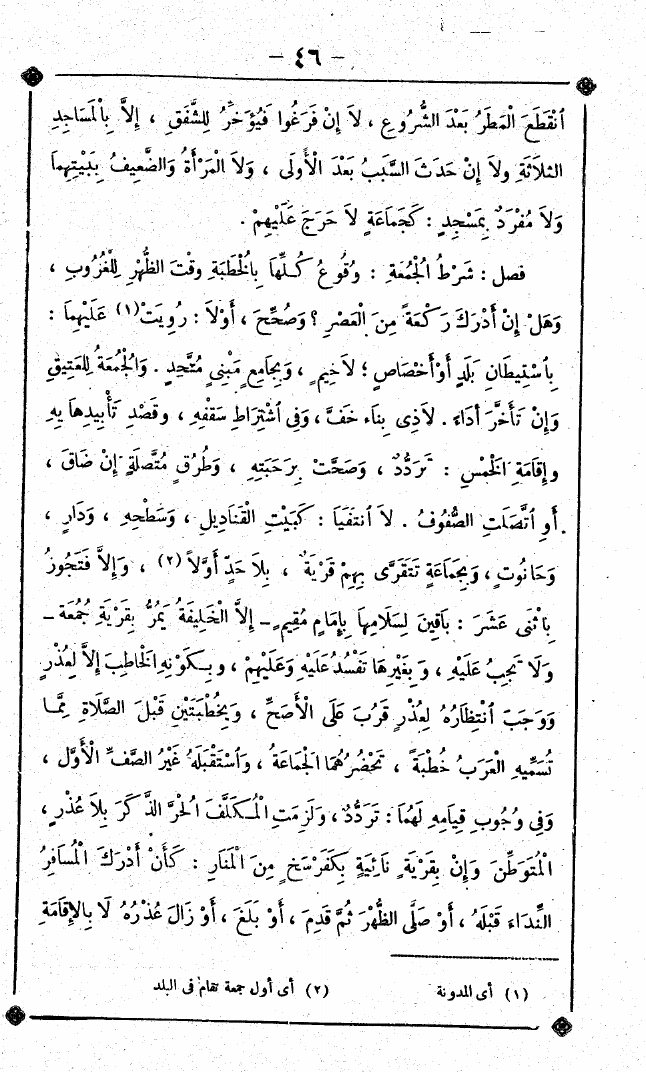 - ٤٦ -
ٱنْقَطَعَ الْمَطَرُ بَعْدَ الشُّرُوعِ ، لَا إِنْ فَرَغُوا فَيُؤَخَّرُ لِلشَّفَقِ ، إِلاَّ بِالْمَسَاجِدِ
الثلاَثَةِ ولاَ إِنْ حَدَثَ السَّبَبُ بَعْدَ الْأُولَى ، وَلاَ الْمَرْأَةُ وَالضَّعِيفُ بِبَيْتِهِمَا
وَلاَ مُفْرَدٌ بِمَسْجِدٍ : كَجَمَاعَةٍ لاَ حَرَجَ عَلَيْهِمْ .
فصل : شَرْطُ الْجُمُعَةِ : وُقُوعُ كُلِّهَا بِالْخُطْبَةِ وقْتَ الظُّهْرِ لِلْغُرُوبِ ،
وَهَلْ إِنْ أَدْرَكَ رَكْعَةً مِنَ الْعَصْرِ ؟ وَصُحِّحَ ، أَوْلاَ : رُوِيَتْ (١) عَلَيْهِمَا :
بِاسْتِيطَانِ بَلَدٍ أَوْ أَخْصَاصٍ ؛ لاَخِيمٍ ، وَبِجَامِعٍ مَبْنِيٍ مُتَّحِدٍ . وَالْجُمُعَةُ لِلْعَتِيقِ
وَإِنْ تَأَخَّرَ أَدَاءً . لاَذِى بِنَاءٍ خَفَّ ، وَفِى اشْتِرَاطِ سَقْفِهِ ، وقَصْدِ تَأْبِيدِهَا بِهِ
وإِقَامَةِ الْخَمْسِ : تَرَدُّدٌ ، وَصَحَّتْ بِرَحَبَتِهِ ، وَطُرُقٍ مُتَّصِلَةٍ إِنْ ضَاقَ ،
أَوِ ٱتَّصَلَتِ الصُّفُوفُ . لاَ ٱنْتَفَيَا : كَبَيْتِ الْقَنَادِيلِ ، وَسَطْحِهِ ، وَدَارٍ ،
وَحَانُوتٍ ، وَبِجَمَاعَةٍ تَتَقَرَّى بِهِمْ قَرْيَةٌ ، بِلاَ حَدٍّ أَوَّلاً (٢) ، وَإِلاَّ فَتَجُوزُ
بِاثْنَى عَشَرَ : بَاقِينَ لِسَلاَمِهَا بِإِمَامٍ مُقِيمٍ ـ إِلاَّ الْخَلِيفَةَ يَمُرُّ بِقَرْيَةِ جُمُعَةٍ ـ
وَلاَ تَجِبُ عَلَيْهِ ، وَبِغَيْرِهَا تَفْسُدُ عَلَيْهِ وَعَلَيْهِمْ ، وبِكَوْنِهِ الْخَاطِبَ إِلاَّ لِعُذْرٍ
وَوَجَبَ ٱنْتِظَارُهُ لِعُذْرٍ قَرُبَ عَلَى الْأَصَحِّ ، وَبِخُطْبَتَيْنِ قَبْلَ الصَّلاَةِ مِمَّا
تُسَمِّيهِ الْعَرَبُ خُطْبَةً ، تَحْضُرُهُمَا الْجَمَاعَةُ ، وَٱسْتَقْبَلَهُ غَيْرُ الصَّفِّ الْأَوَّلِ ،
وَفِى وُجُوبِ قِيَامِهِ لَهُمَا : تَرَدُّدٌ ، وَلَزِمَتِ الْمُكَلَّفَ الْحُرَّ الذَّكَرَ بِلاَ عُذْرٍ ،
الْمُتَوَطِّنَ وَإِنْ بِقَرْيَةٍ نَائِيَةٍ بِكَفَرْسَخٍ مِنَ الْمَنَارِ : كَأَنْ أَدْرَكَ الْمُسَافِرُ
النِّدَاءَ قَبْلَهُ ، أَوْ صَلَّى الظُّهْرَ ثُمَّ قَدِمَ ، أَوْ بَلَغَ ، أَوْ زَالَ عُذْرُهُ لَا بِالإِقَامَةِ
(١) أى المدونة (٢) أى أول جمعة تقام فى البلد